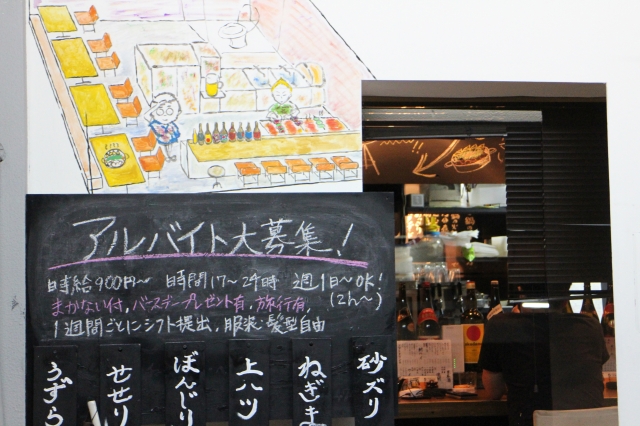 アルバイト大募集!
時給900円〜 時間17〜24時 週1日〜OK!
(2h〜)
まかない付, バースデープレゼント有, 旅行有,
1週間ごとにシフト提出, 服装・髪型自由
砂ズリ
ねぎま
上ハツ
ぼんじり
せせり
うずら